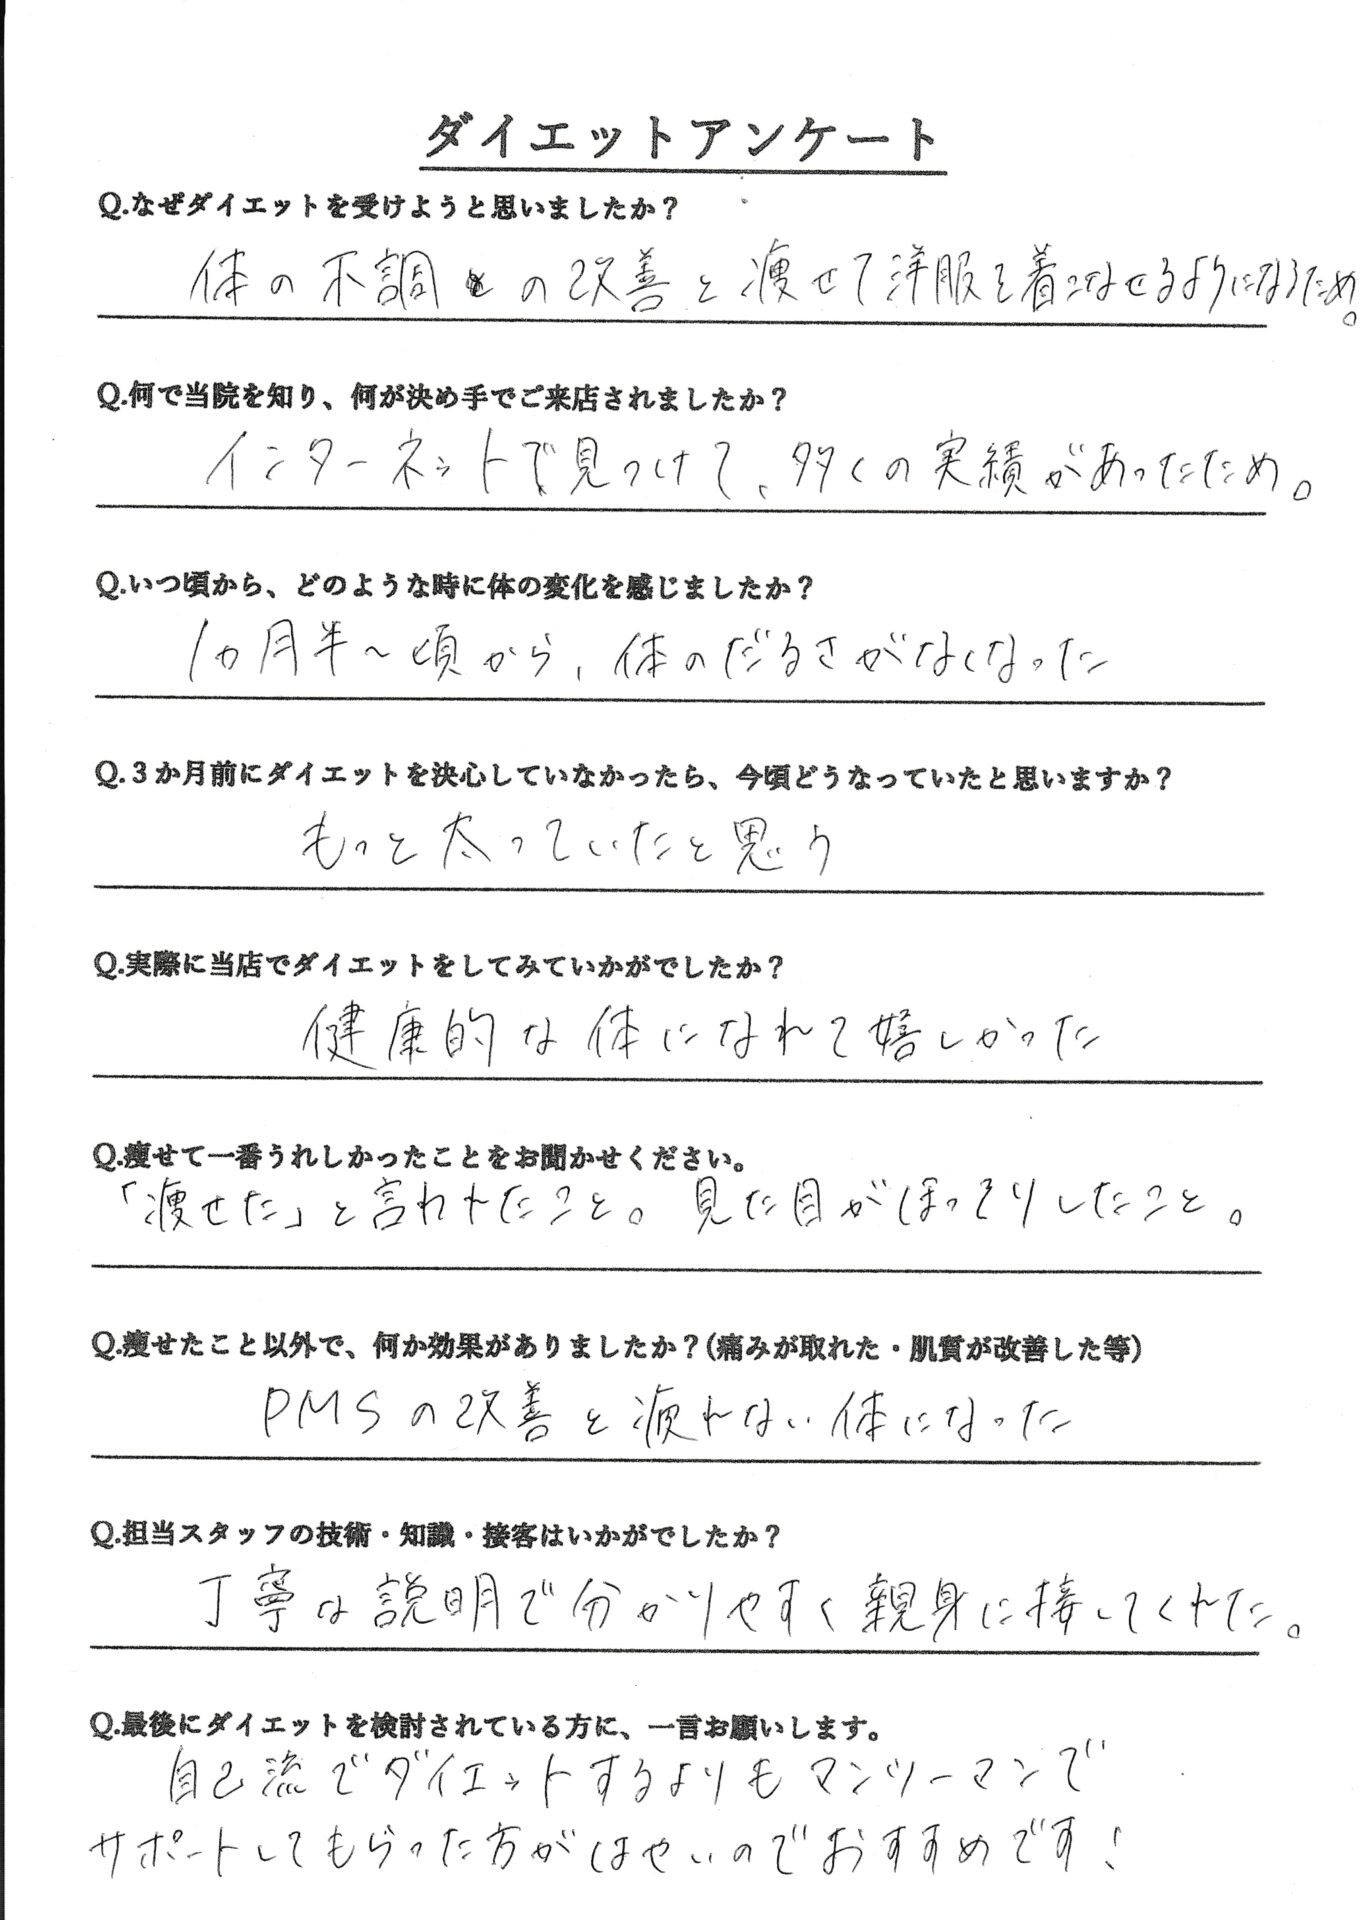 ダイエットアンケート
Q.なぜダイエットを受けようと思いましたか？
体の不調の改善と痩せて洋服を着こなせるようになるため。
Q.何で当院を知り、何が決め手でご来店されましたか？
インターネットで見つけて、多くの実績があったため。
Q.いつ頃から、どのような時に体の変化を感じましたか？
1ヵ月半～頃から、体のだるさがなくなった
Q.３か月前にダイエットを決心していなかったら、今頃どうなっていたと思いますか？
もっと太っていたと思う
Q.実際に当店でダイエットをしてみていかがでしたか？
健康的な体になれて嬉しかった
Q.痩せて一番うれしかったことをお聞かせください。
「痩せた」と言われたこと。見た目がほっそりしたこと。
Q.痩せたこと以外で、何か効果がありましたか？(痛みが取れた・肌質が改善した等)
PMSの改善と疲れない体になった
Q.担当スタッフの技術・知識・接客はいかがでしたか？
丁寧な説明で分かりやすく親身に接してくれた。
Q.最後にダイエットを検討されている方に、一言お願いします。
自己流でダイエットするよりもマンツーマンで
サポートしてもらった方がはやいのでおすすめです！